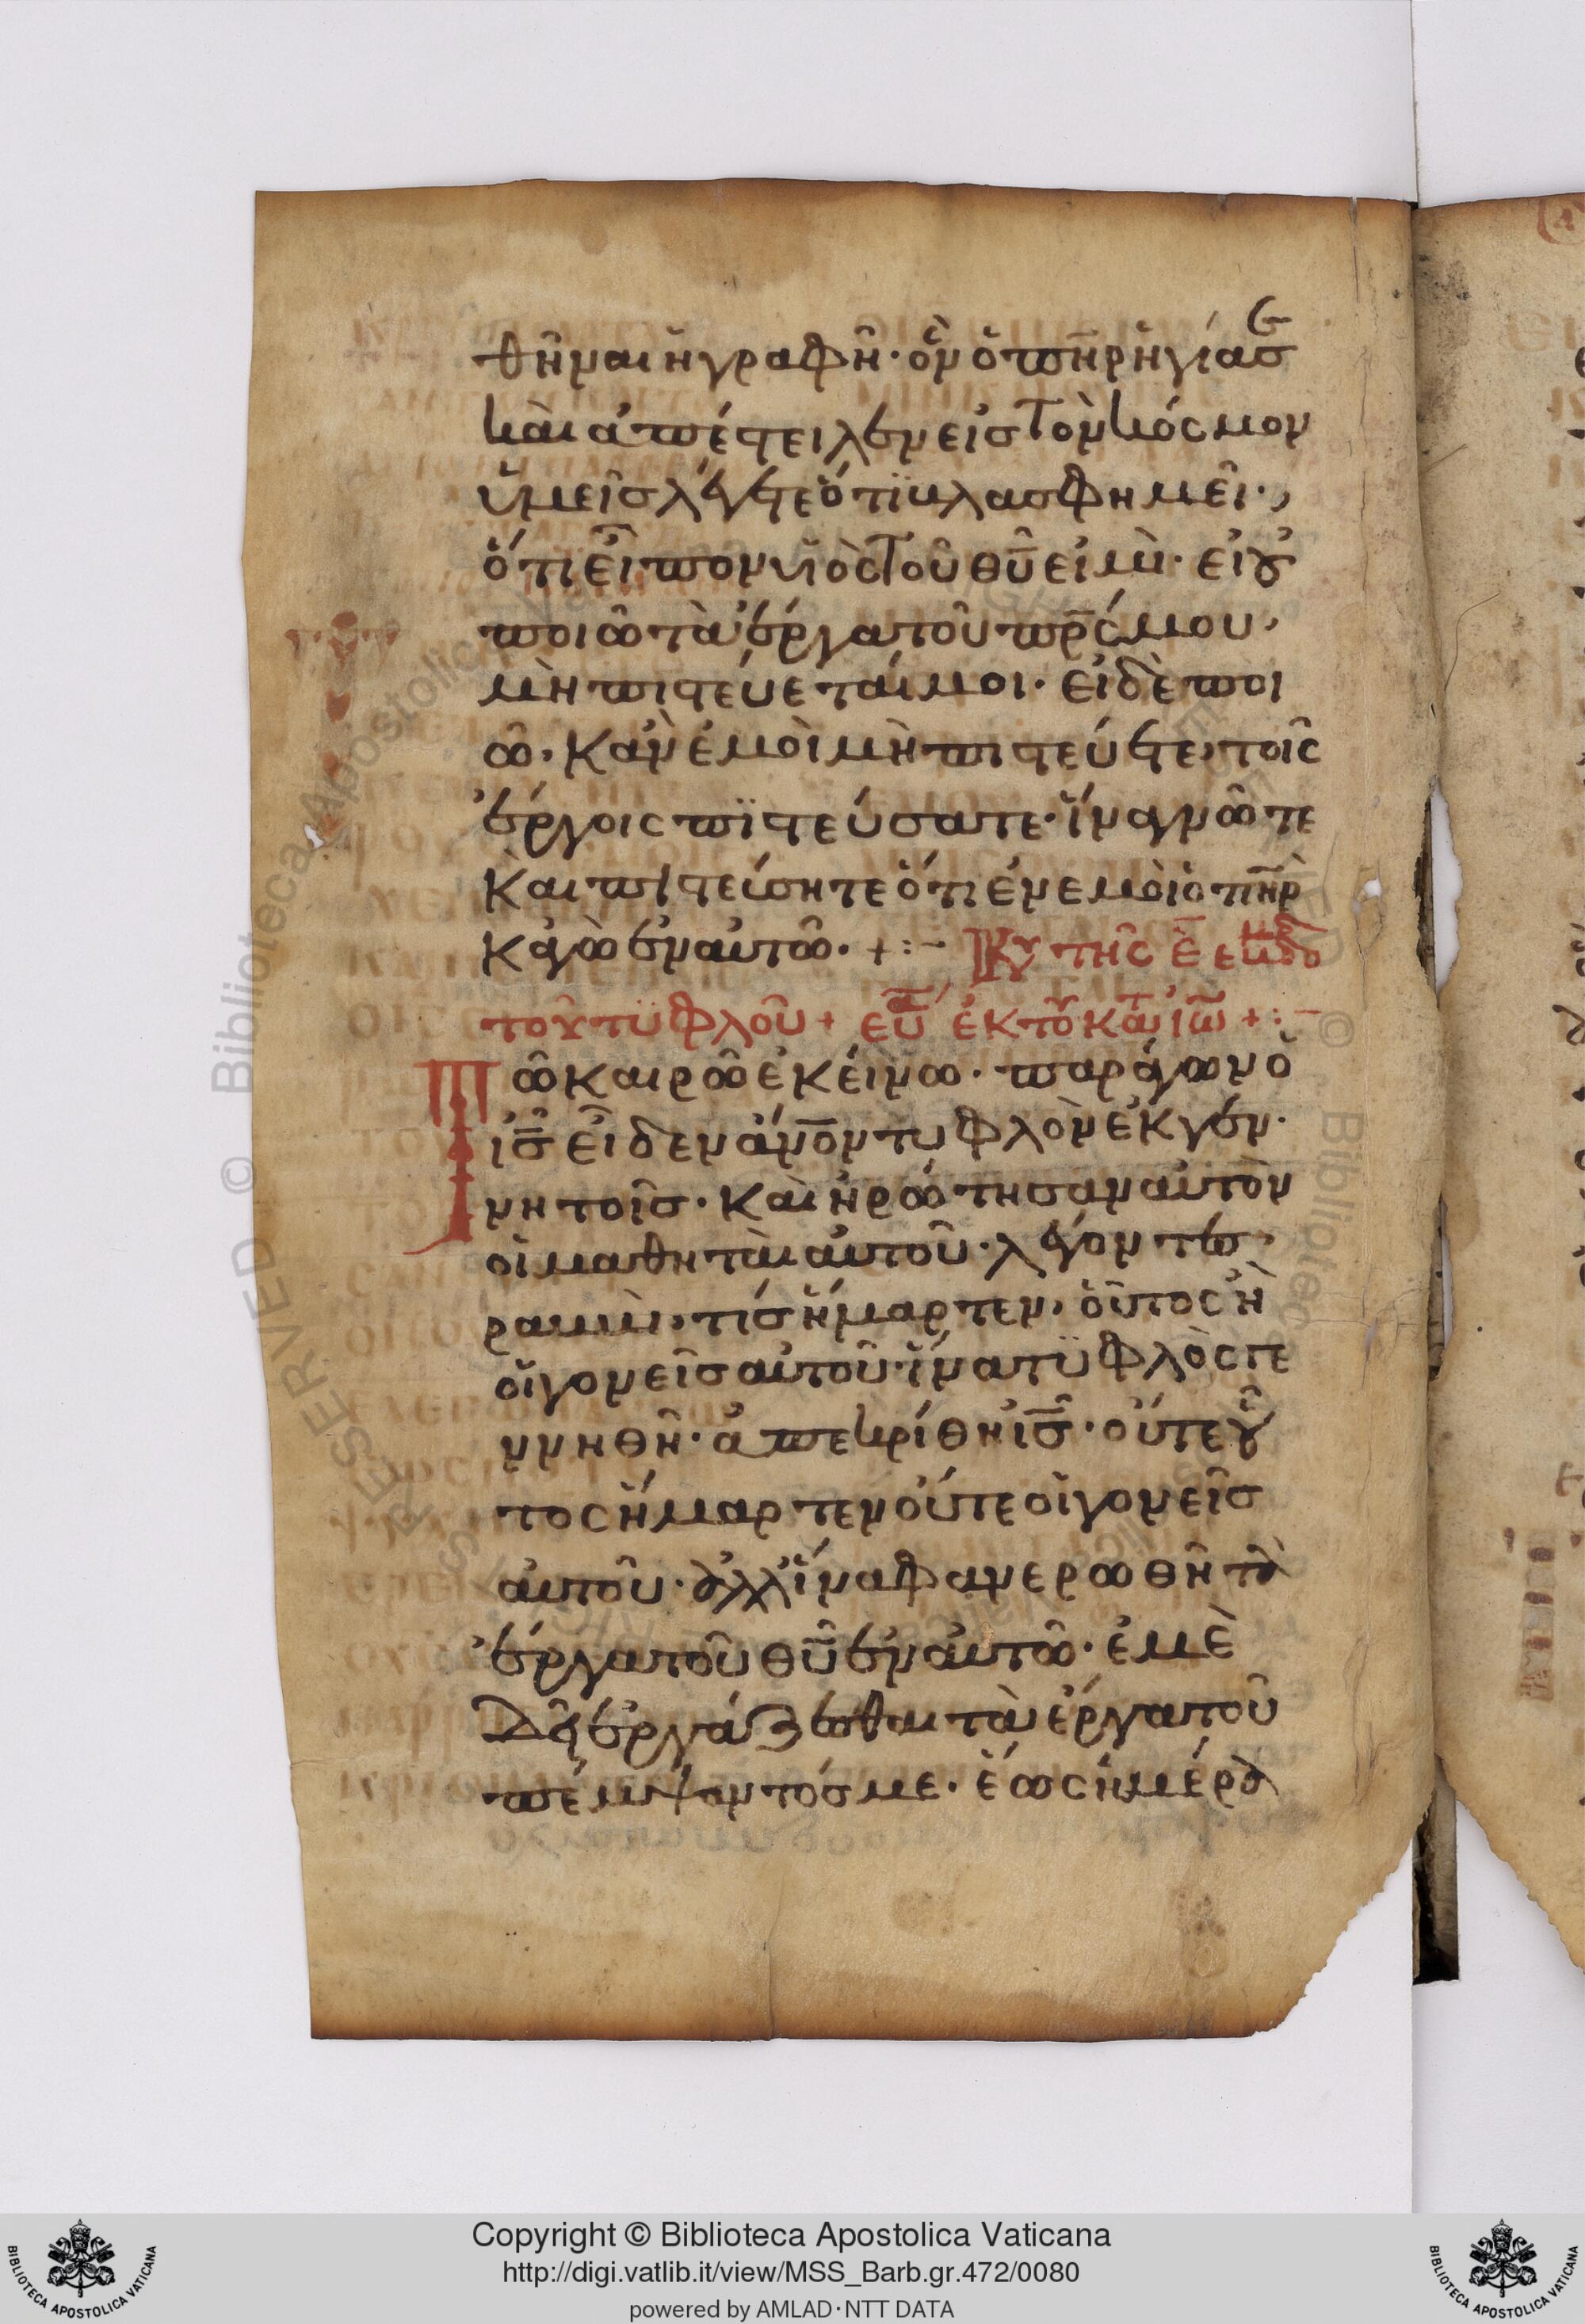 θῆναι ἡ γραφή· ὃν ὁ πη̅ρ ἡγίασε
καὶ ἀπέστειλεν εἰς τὸν κόσμον
ὑμεῖς λέγετε ὅτι βλασφημεῖ·,
ὅτι εἶπον υἱὸς τοῦ θυ̅ εἰμὶ· εἰ οὐ
ποιῶ τὰ ἔργα τοῦ πρ̅ς μου,
μὴ πιστεύεταί μοι· εἰ δὲ ποι
ῶ, κἂν ἐμοὶ μὴ πιστεύετε, τοῖς
ἔργοις πϊστεύσατε· ἵνα γνῶτε
καὶ πιστεύσητε ὅτι ἐν εμοὶ ὁ πη̅ρ
κἀγὼ ἐν αὐτῶ· +:– Κυ τῆς ε̅ εβδο
τοῦ τϋφλοῦ + ευα̅ ἐκ τοῦ κατ ιω̅ +:–
Τῶ καιρῶ ἐκείνω· παράγων ὁ
ι̅ς̅ εἶδεν ἄνο̅ν τυφλὸν ἐκ γεν·
νητοῖς· καὶ ἠρώτησαν αὐτὸν
οἱ μαθηταὶ αὐτοῦ· λέγοντες,
ραββὶ, τίς ἥμαρτεν, οὗτος ἢ
οἱ γονεῖς αὐτοῦ· ἵνα τϋφλὸς γε
ννηθῆ· ἀπεκρίθη ι̅ς̅· οὔτε οὗ
τος ἥμαρτεν οὔτε οἱ γονεῖς
αὐτοῦ· ἀλλ' ἵνα φανερωθῆ τὰ
ἔργα τοῦ θυ̅ ἐν αὐτῶ· ἐμὲ
δεῖ ἐργάζεσθαι τὰ ἔργα τοῦ
πέμψαντός με· ἕως ἡμέρα
Copyright © Biblioteca Apostolica Vaticana
http://digi.vatlib.it/view/MSS_Barb.gr.472/0080
powered by AMLAD·NTT DATA
BIBLIOTECA APOSTOLICA VATICANA
BIBLIOTECA APOSTOLICA VATICANA